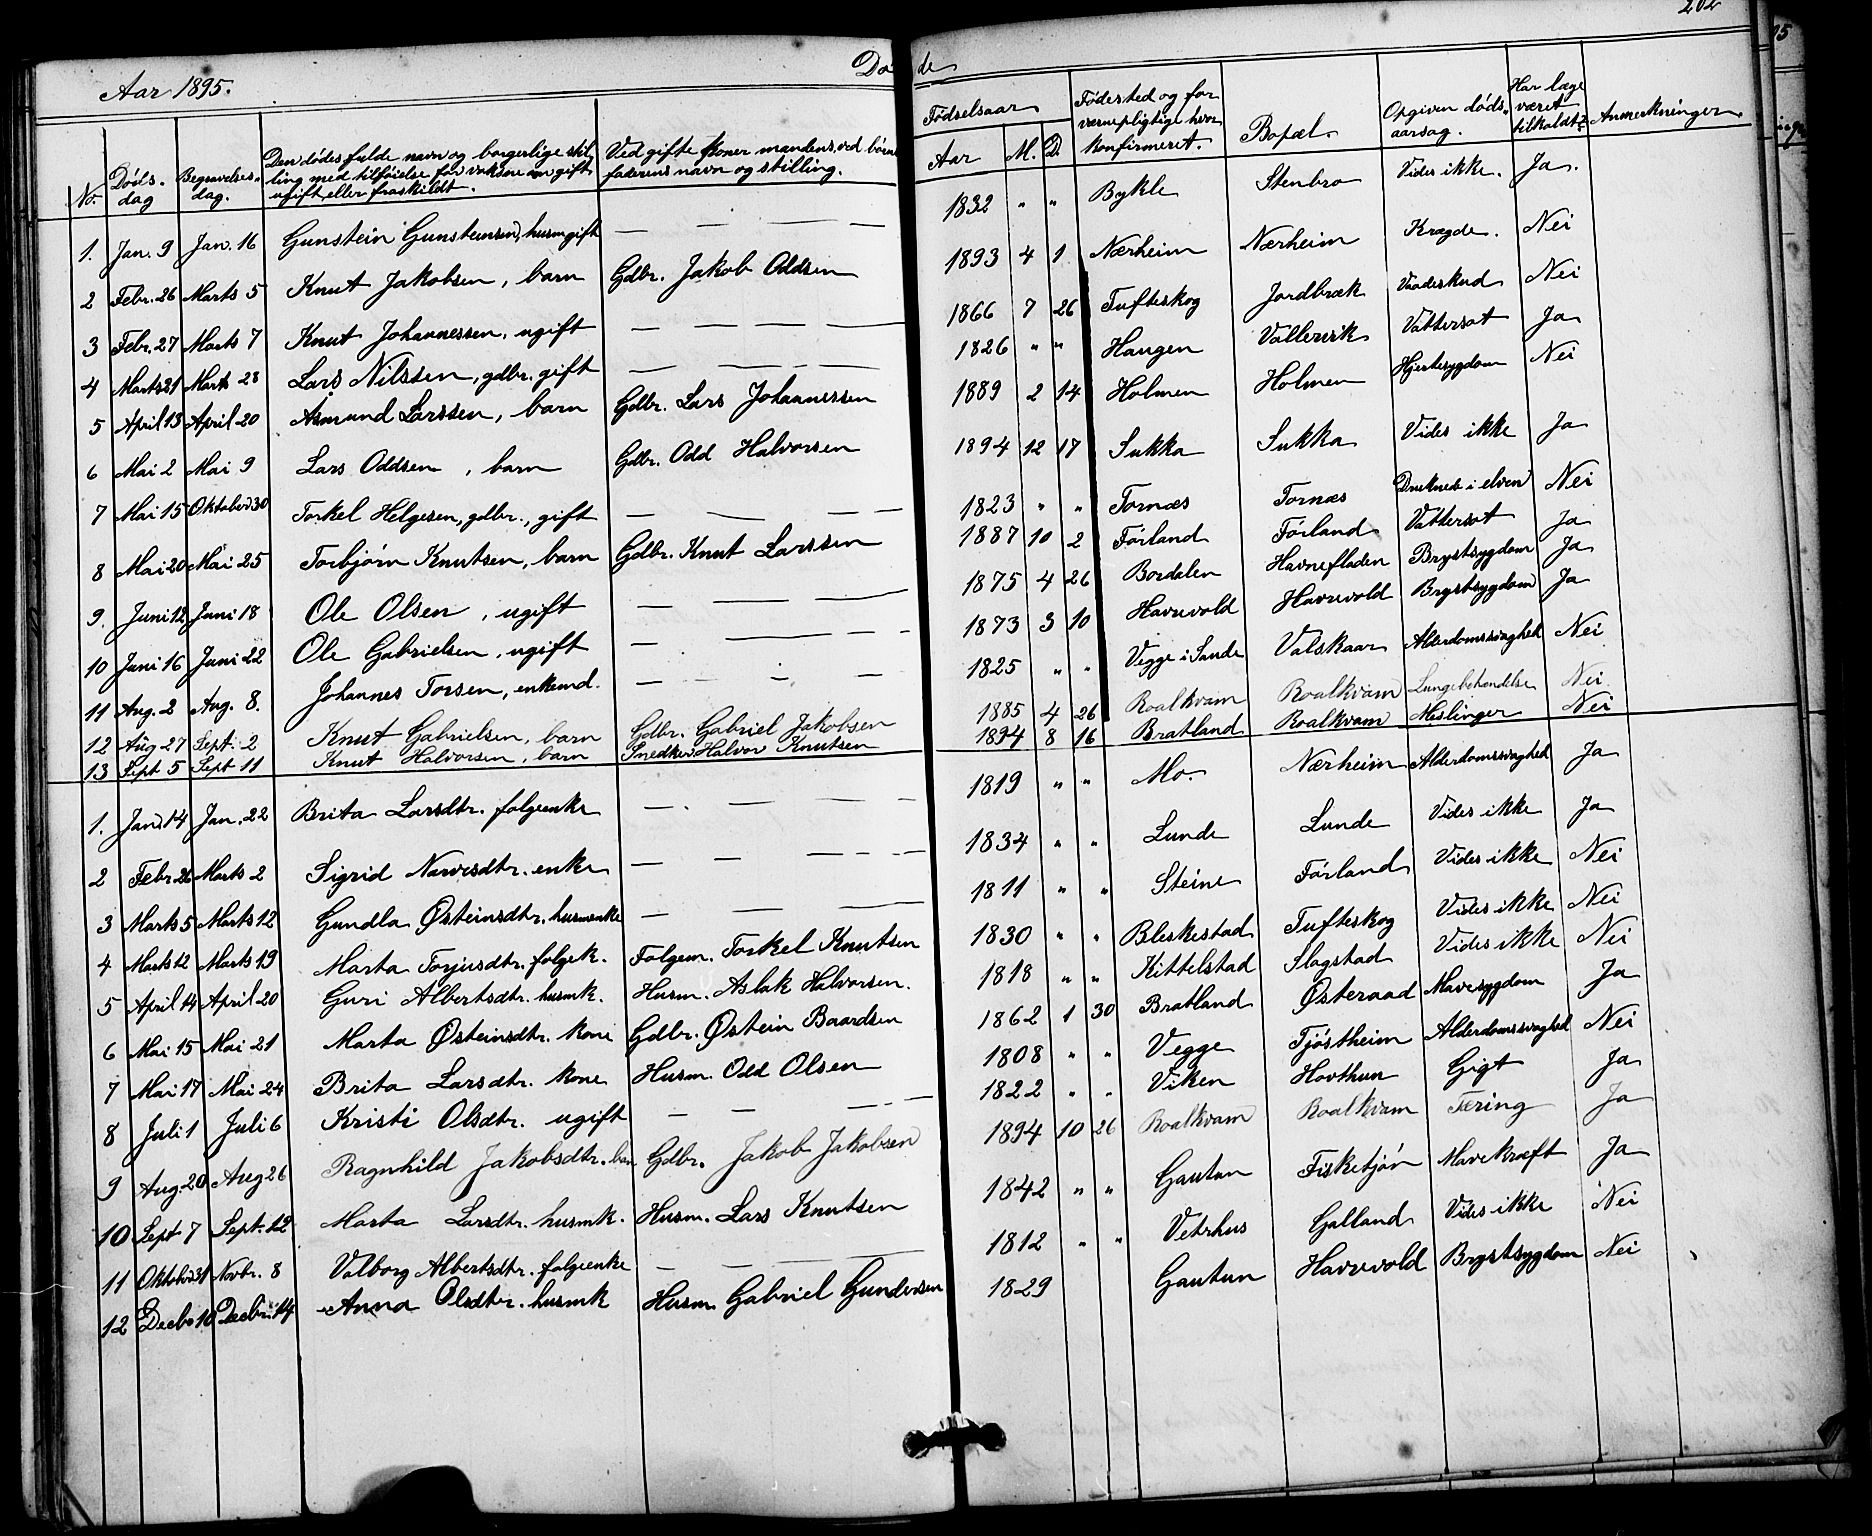 202
Aar 1895.
Døde
No. Døds. dag Begravelses- dag. Den dødes fulde navn og borgerlige stilling med tilføielse for voksne om gift ugift eller fraskildt. Ved gifte koner mandens, ved børn faderens navn og stilling. Fødselsaar Aar M. D. Fødested og for værnepligtige hvor konfirmeret. Bopæl Opgiven døds- aarsag. Har læge været tilkaldt? Anmerkninger
1. Jan. 9 Jan. 16 Gunstein Gunsteinsen, husm gift — — — 1832 " " Bykle Stenbro Vides ikke. Ja.
2 Febr. 26 Marts 5 Knut Jakobsen, barn Gdbr. Jakob Oddsen 1893 4 1 Nærheim Nærheim Krægde. Nei
3 Febr. 27 Marts 7 Knut Johannessen, ugift — — — 1866 7 26 Tufteskog Jordbræk Vaadeskud Nei
4 Marts 21 Marts 28 Lars Nilssen, gdbr. gift — — — 1826 " " Haugen Vallervik Vattersot Ja
5 April 13 April 20 Asmund Larssen, barn Gdbr. Lars Johannessen 1889 2 14 Holmen Holmen Hjertesygdom Nei
6 Mai 2 Mai 9 Lars Oddsen, barn Gdbr. Odd Halvorsen 1894 12 17 Sukka Sukka Vides ikke Ja
7 Mai 15 Oktober 30 Torkel Helgesen, gdbr., gift — — — 1823 " " Tornæs Tornæs Druknede i elven Nei
8 Mai 20 Mai 25 Torbjørn Knutsen, barn Gdbr. Knut Larssen 1887 10 2 Førland Førland Vattersot Ja
9. Juni 12 Juni 18 Ole Olsen, ugift — — — 1875 4 26 Bordalen Havnefladen Brystsygdom Ja
10 Juni 16 Juni 22 Ole Gabrielsen, ugift — — — 1873 3 10 Havrevold Havrevold Brystsygdom Ja
11 Aug. 2 Aug. 8. Johannes Torsen, enkemd. — — — 1825 " " Vegge i Sande Valskaar Alderdomssvaghed Nei
12 Aug 27 Sept. 2 Knut Gabrielsen, barn Gdbr. Gabriel Jakobsen 1885 4 26 Roalkvam Roalkvam Lungebetændelse Nei
13 Sept 5 Sept 11 Knut Halvorsen, barn Snedker Halvor Knutsen 1894 8 16 Bratland Roalkvam Meslinger Nei
1. Jan. 14 Jan. 22 Brita Larsdtr. folgeenke — — — 1819 " " Mo. Nærheim Alderdomssvaghed Ja
2 Febr 26 Marts 2 Sigrid Narvesdtr. enke — — — 1834 " " Lunde Lunde Vides ikke Ja
3 Marts 5 Marts 12 Gundla Østeinsdtr. husmenke — — — 1811 " " Steine Førland Vides ikke Nei
4 Marts 12 Marts 19 Marta Torjusdtr. folgek. Folgem. Torkel Knutsen 1830 " " Bleskestad Tufteskog Vides ikke Nei
5 April 14 April 20 Guri Albertsdtr. husmk. Husm. Aslak Halvorsen. 1818 " " Kittelstad Slagstad Vides ikke Nei
6 Mai 15 Mai 21 Marta Østeinsdtr. kone Gdbr. Østein Baardsen 1862 1 30 Bratland Østeraad Mavesygdom Ja
7 Mai 17 Mai 24 Brita Larsdtr. kone Husm. Odd Olsen 1808 " " Vegge Tjøstheim Alderdomssvaghed Nei
8 Juli 1 Juli 6 Kristi Olsdtr. ugift — — — 1822 " " Viken Hovthun Gigt Ja
9 Aug. 20 Aug 26 Ragnhild Jakobsdtr. barn Gdbr. Jakob Jakobsen 1894 10 26 Roalkvam Roalkvam Tæring Ja
10 Sept 7 Sept. 12 Marta Larsdtr. husmk. Husm. Lars Knutsen 1842 " " Gautun Fisketjøn Mavekræft Ja
11 Oktober 31 Novbr. 8 Valborg Albertsdtr. folgeenke — — — 1812 " " Vetrhus Galland Vides ikke Nei
12 Decbr 10 Decbr. 14 Anna Olsdtr. husmk Husm. Gabriel Gundersen 1829 Gautun Havrevold Brystsygdom Nei